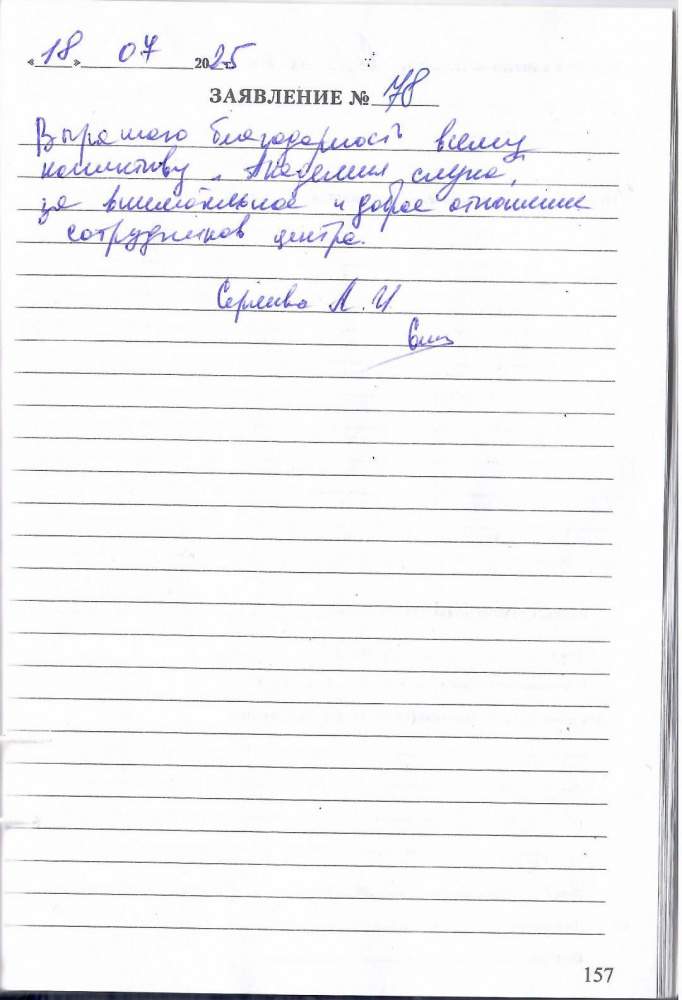 «18» 07 2025
ЗАЯВЛЕНИЕ № 78
Выражаю благодарность всему
коллективу „Академия слуха"
за внимательное и доброе отношение
сотрудников центра.
А. И
157